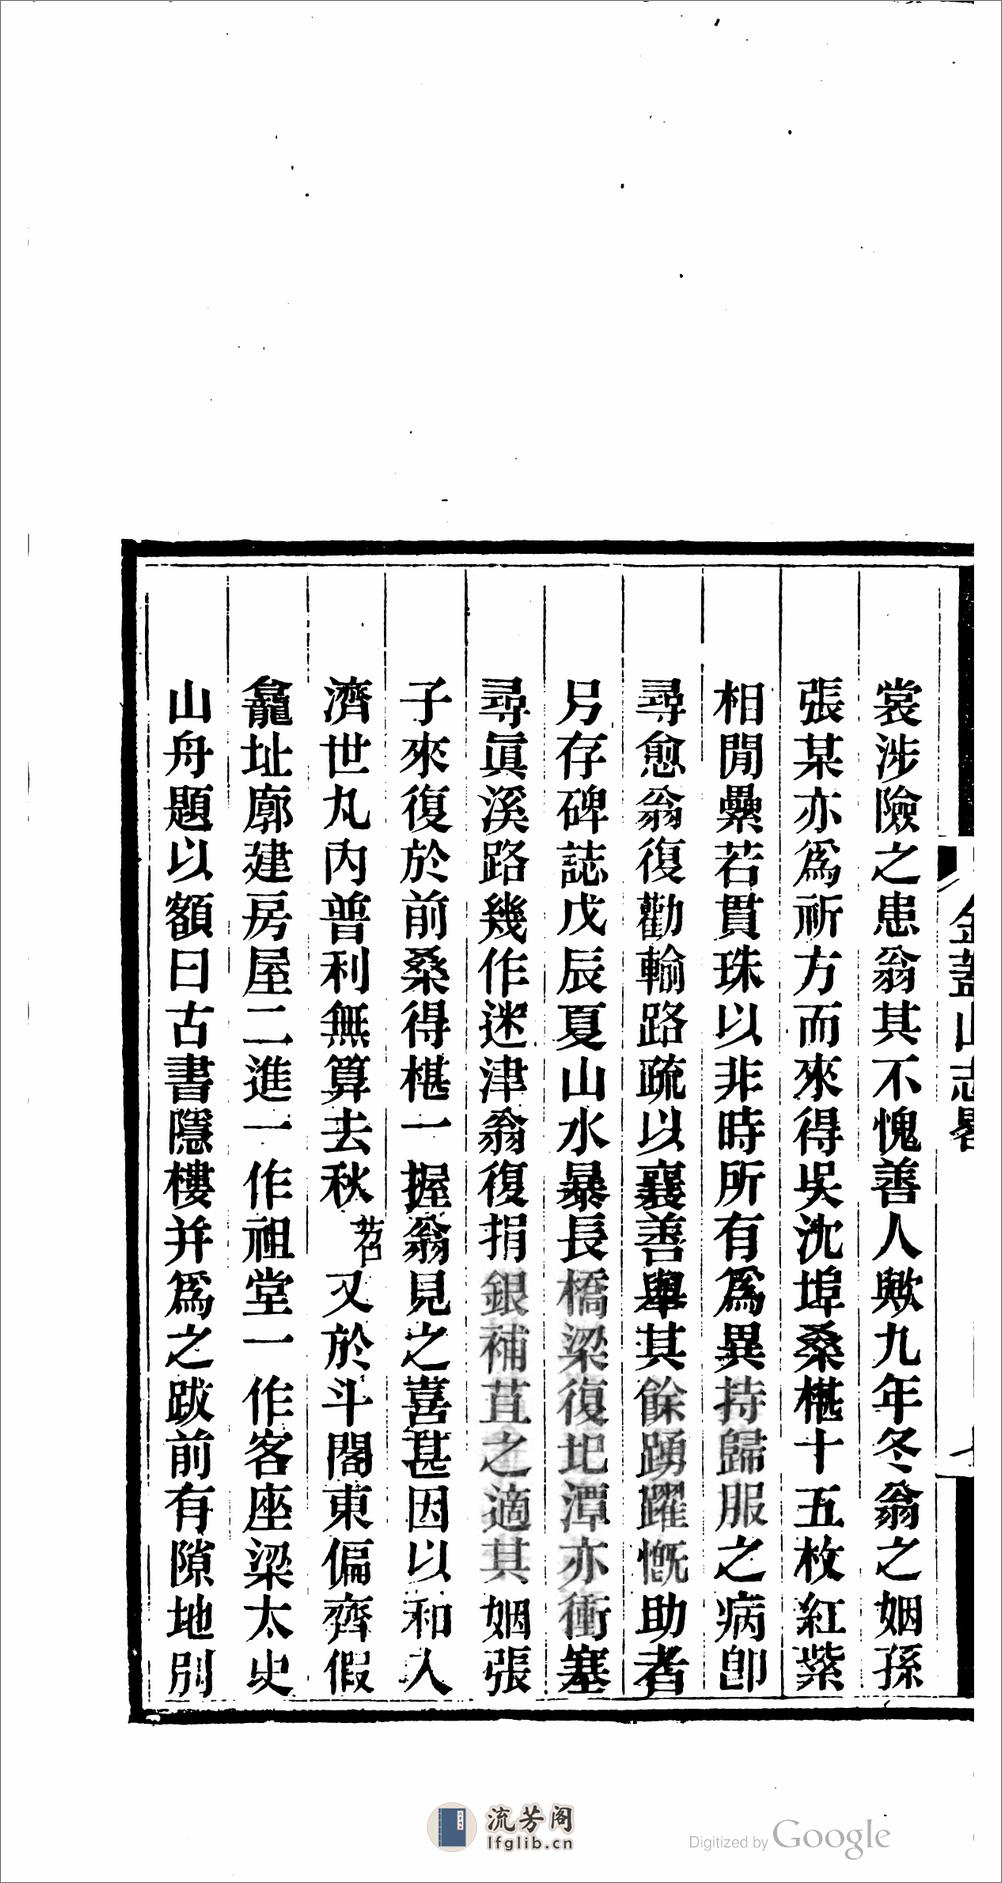 裳涉險之患翁其不愧善人歟九年冬翁之姻孫
張某亦爲祈方而來得吳沈埠桑椹十五枚紅紫
相間纍若貫珠以非時所有爲異持歸服之病卽
尋愈翁復勸輸路疏以襄善舉其餘踴躍慨助者
另存碑誌戊辰夏山水暴長橋梁復圯潭亦衝塞
尋眞溪路幾作迷津翁復捐銀補苴之適其姻張
子來復於前桑得椹一握翁見之喜甚因以和入
濟世丸內普利無算去秋苕又於斗閣東偏齊假
龕址廓建房屋二進一作祖堂一作客座梁太史
山舟題以額曰古書隱樓并爲之跋前有隙地別
金蓋山志畧
流芳阁
lfglib.cn
Digitized by Google